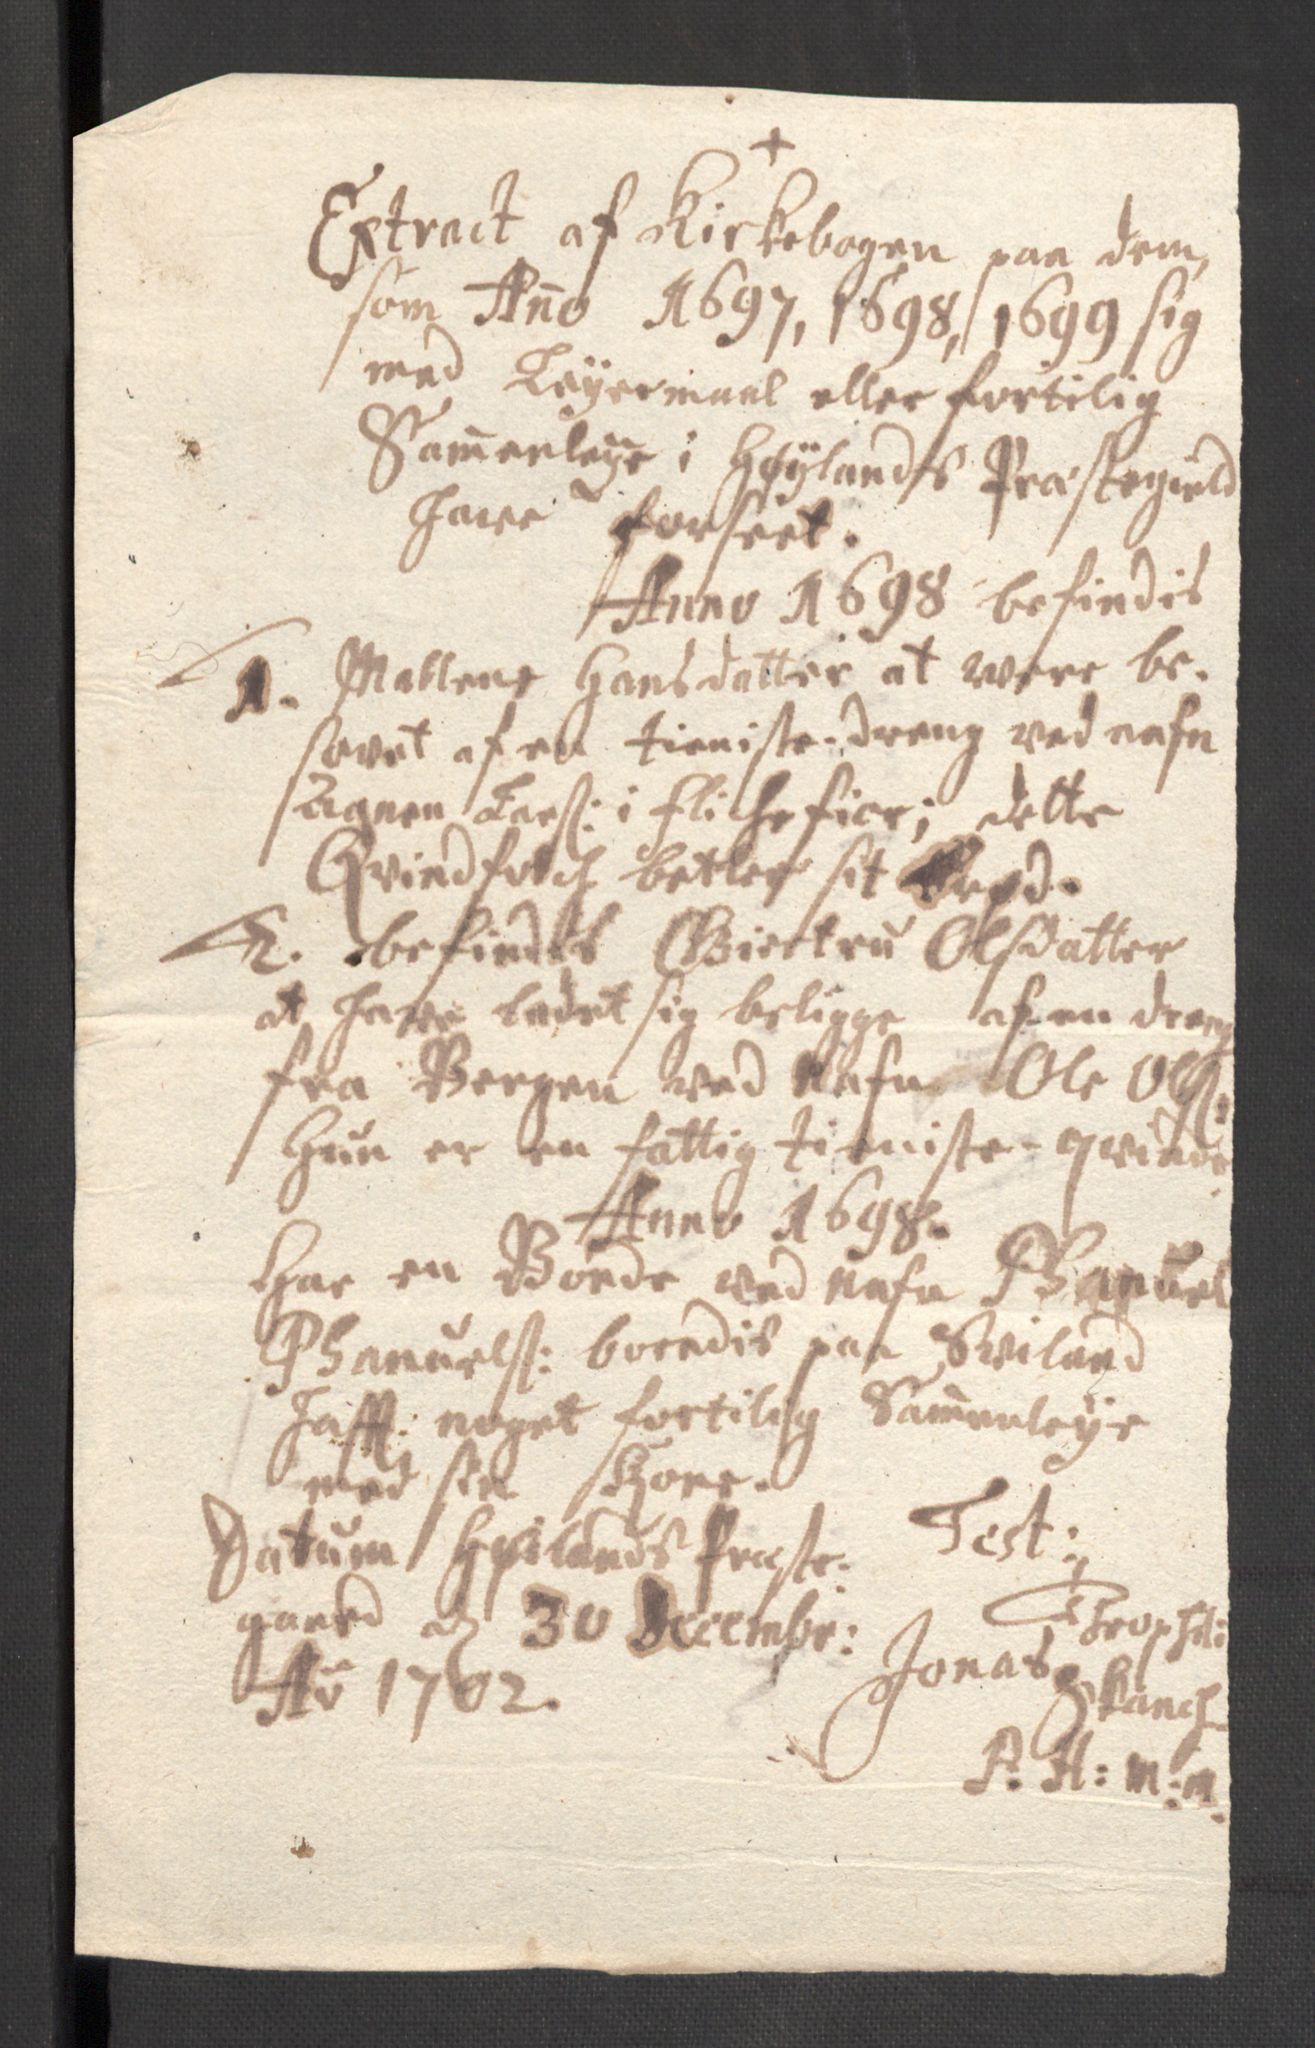 +
Extract af Kirkebogen paa dem,
som Año 1697, 1698, 1699 sig
med Leÿermaal eller fortilig
Sam̄enleÿe i Høÿlands Præstegield
hafve forseet.
Anno 1698 befindis
1. Mallene Hansdatter at were be-
sovet af en tieniste-dreng ved nafn
Aanen Larß: i Flichefier; dette
Qvindfolch betler sit Brød.
2. befindis Giertru Olsdatter
at hafve ladet sig beligge af en dreng
fra Bergen ved Nafn Ole Olß:
Hun er en fattig tieniste-qvinde
Anno 1698.
Har en Bonde ved nafn Phanuel
Phanuelß: boendis paa Sviland
hafft noget fortilig Sam̄enleÿe
med sin Kone.
Datum Høilands Præste-
gaard d. 30 Decembr:
Añ 1702.
Test:
Jonas Theophili
Skanch
P. H: m: m.